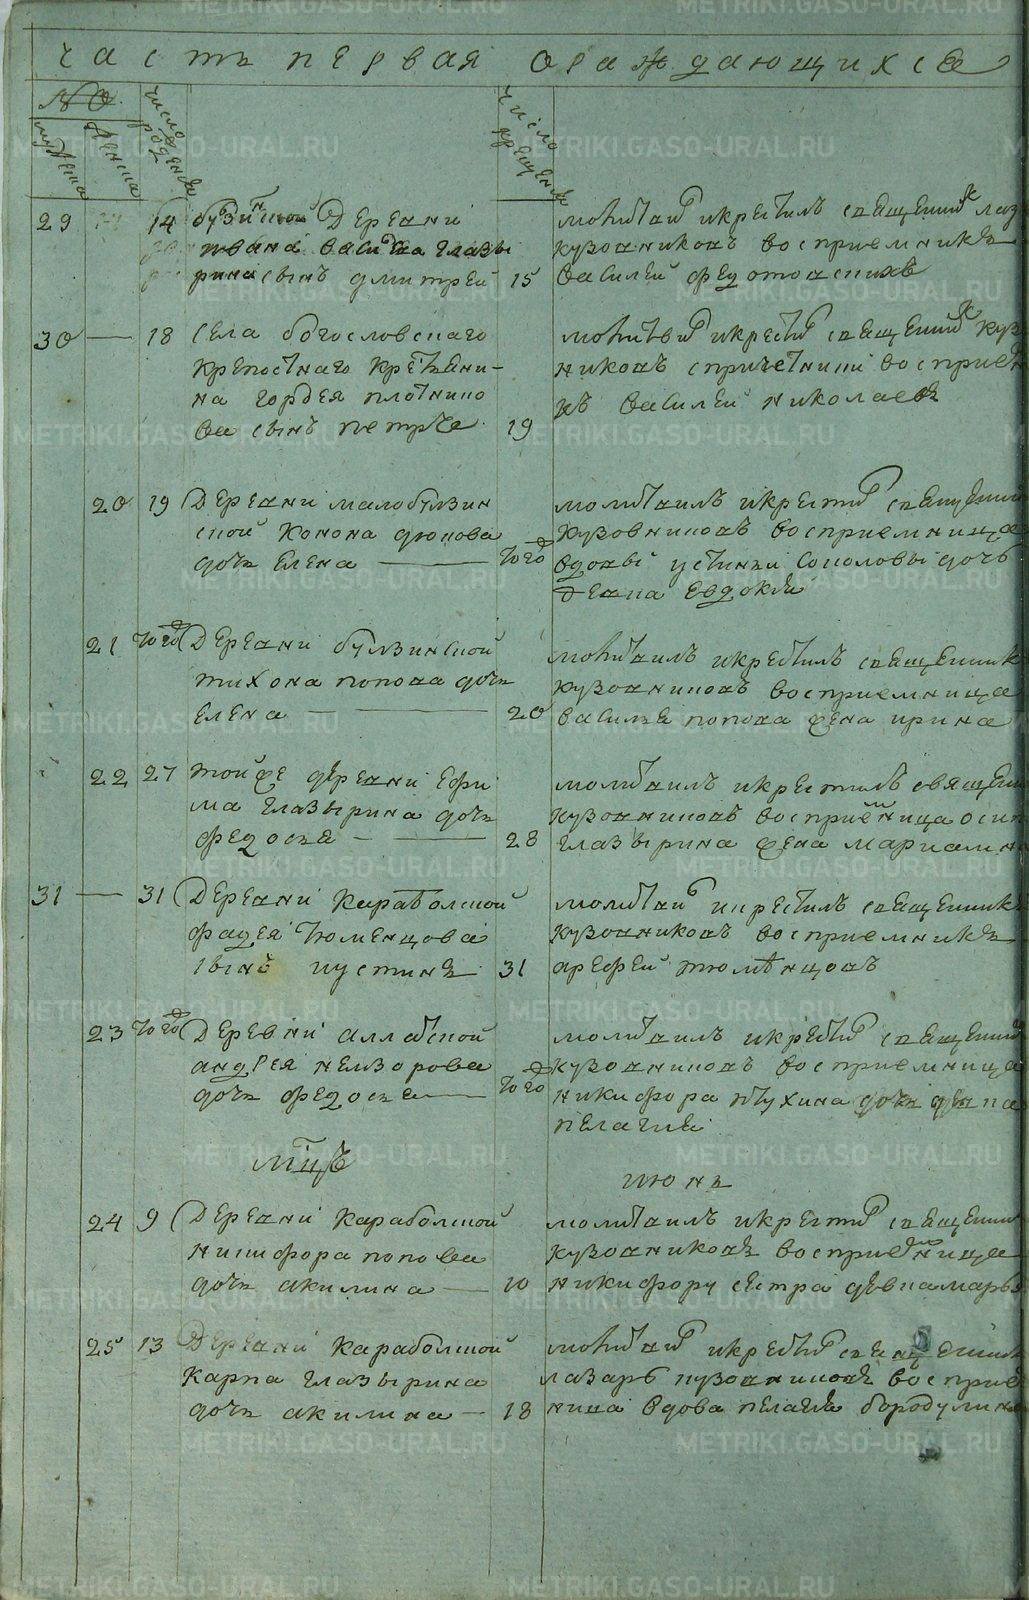 часть первая ораждающихся
№
мужеска
женска
число рожденїя
число крещенїя
29 14 булзинской деревни
ивана василева глазы
рина сынъ дмитрей 15
молитвил и крестилъ священник лаз
кузовниковъ восприемникъ
василей федотовских
30 — 18 села богословскаго
крепостнаго крстьяни-
на гордея плотнико
ва сынъ петръ 19
молитвил и крестил священник куз
никовъ спричетники восприем
къ василей николаев
20 19 деревни малобулзин
ской конона попова
дочь елена — тогож
молитвилъ и крестил священик
кузовниковъ восприемница
вдовы устиньи соколовы дочь
девка евдокия
21 тогож деревни булзинской
тихона попова дочь
елена — 20
молитвилъ и крестилъ священик
кузовниковъ восприемница
василья попова жена ирина
22 27 той же деревни ефи
ма глазырина дочь
федосья — 28
молитвилъ и крестилъ священ
кузовниковъ восприемница осип
глазырина жена мариамн
31 — 31 деревни карабольской
фадея тюменцова
сынъ иустинъ 31
молитвил и крестилъ священикъ
кузовниковъ восприемникъ
арефей тюмѣнцовъ
23 тогож деревни аллакской
андрея невзорова
дочь федосья — тогож
молитвилъ и крестил священик
кузовниковъ восприемница
никифора птухина дочь девка
пелагия
мцъ июнь
24 9 деревни карабольской
никифора попова
дочь акилина — 10
молитвилъ и крестил священик
кузовниковъ восприемница
никифору сестра девка марья
25 13 деревни карабольской
карпа глазырина
дочь акилина — 18
молитвил и крестил священик
лазарь кузовниковъ восприем
ница вдова пелагия бородулин
METRIKI.GASO-URAL.RU